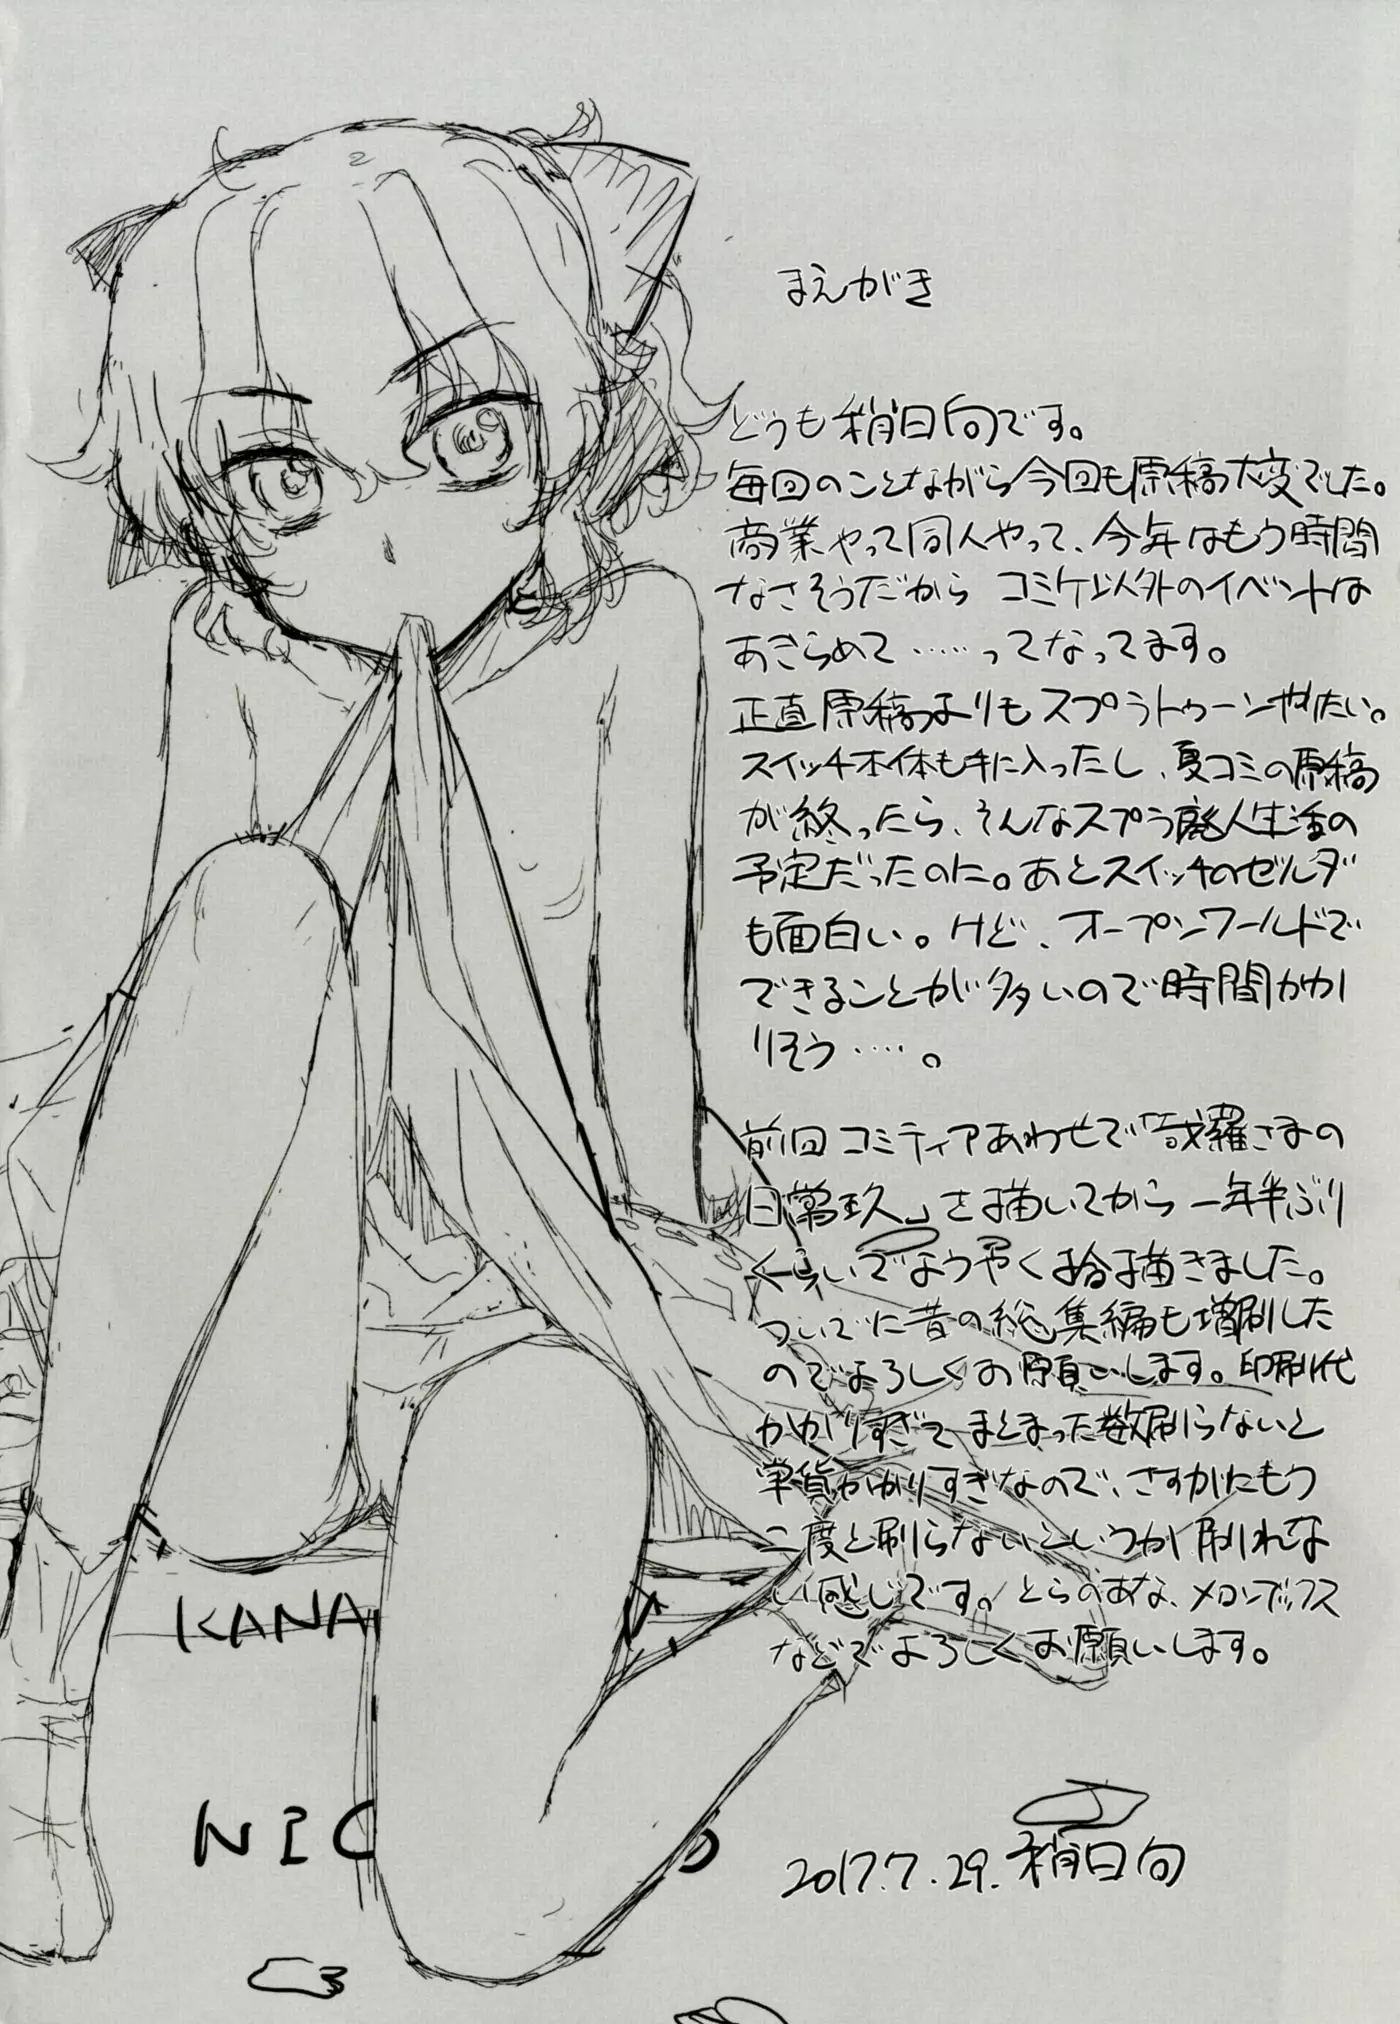 まえがき
どうも稍日向です。
毎回のことながら今回も原稿大変でした。
商業やって同人やって、今年はもう時間
なさそうだからコミケ以外のイベントは
あきらめて……ってなってます。
正直原稿よりもスプラトゥーンやりたい。
スイッチ本体も手に入ったし、夏コミの原稿
が終ったら、そんなスプラ廃人生活の
予定だったのに。あとスイッチのゼルダ
も面白い。けど、オープンワールドで
できることが多いので時間かか
りそう……。
前回コミティアあわせで「哉羅さまの
日常玖」を描いてから一年半ぶり
くらいでようやく拾描きました。
ついでに昔の総集編も増刷した
のでよろしくお願いします。印刷代
かかりすぎてまとまった数刷らないと
単価かかりすぎなので、さすがにもう
二度と刷らないというか刷れな
い感じです。とらのあな、メロンブックス
などでよろしくお願いします。
KANA
NIC
2017.7.29. 稍日向